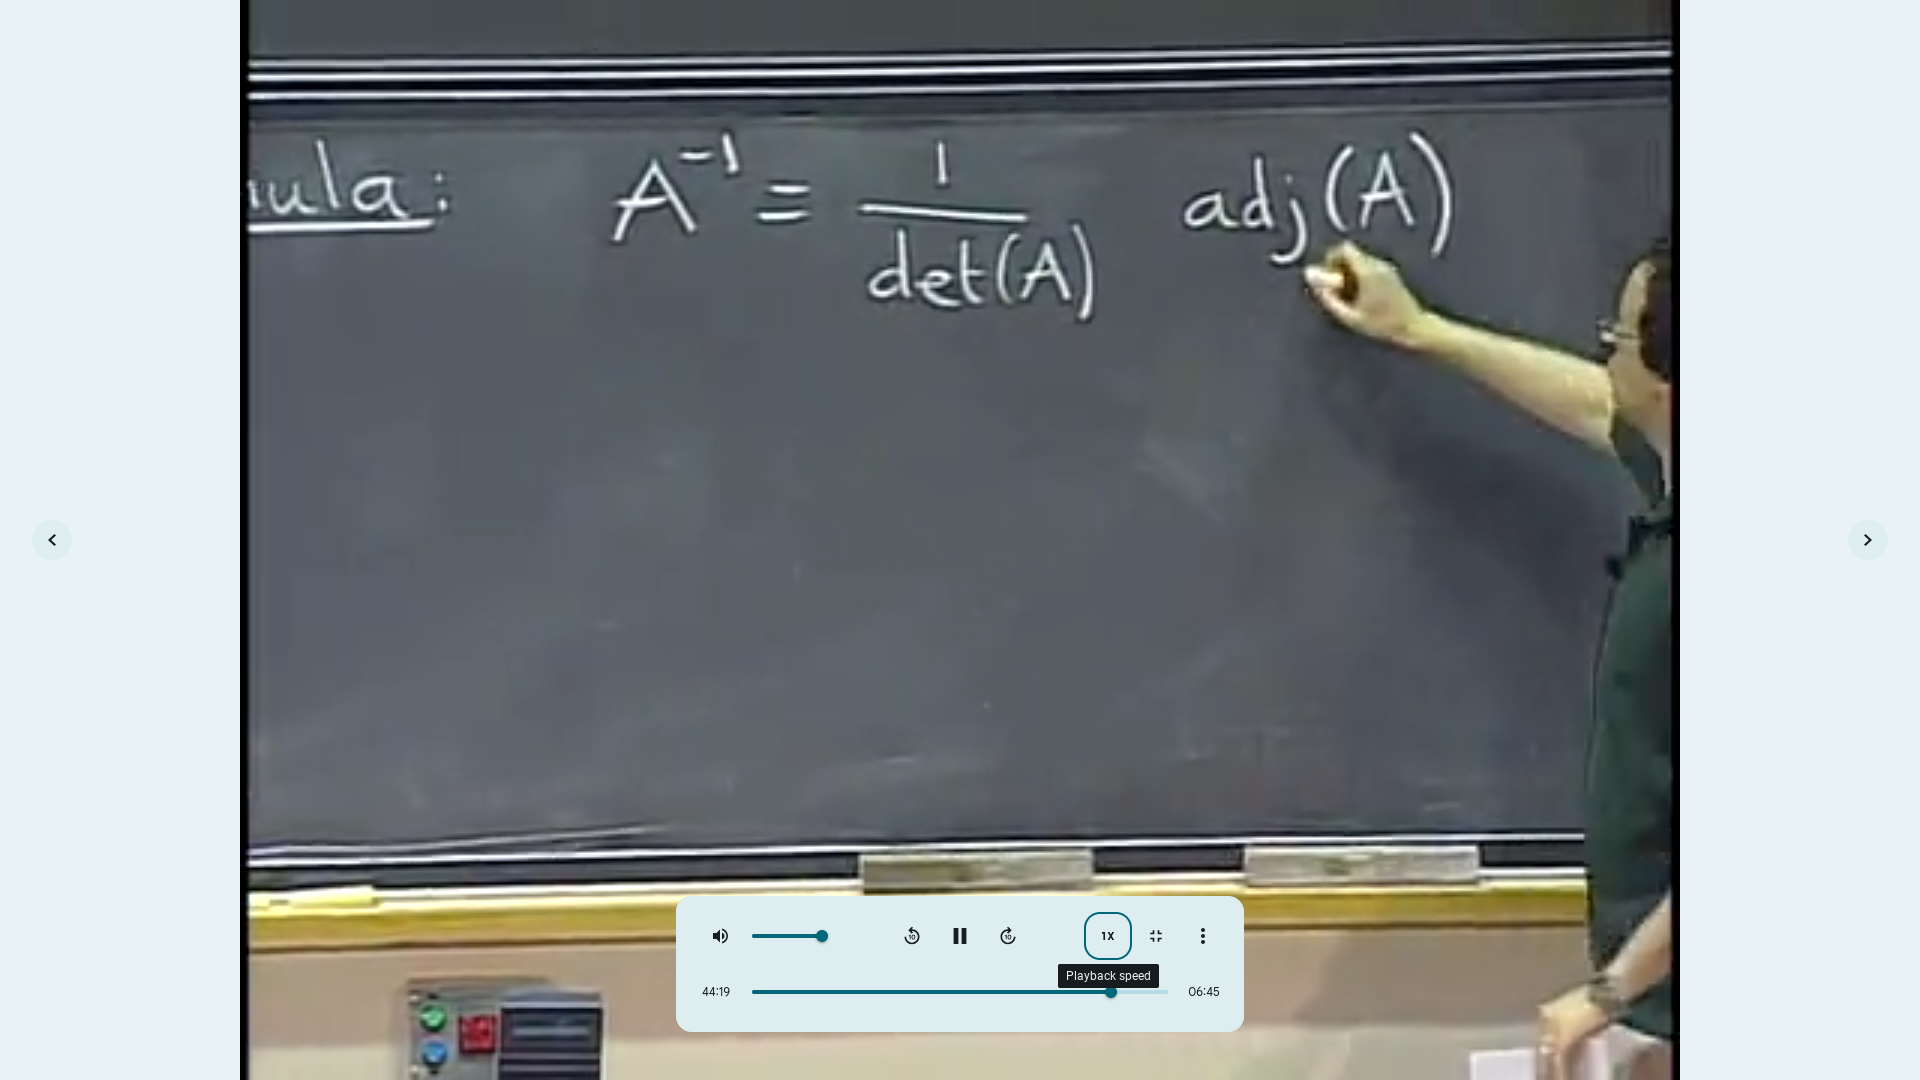 ula: A⁻¹ = 1/det(A) adj(A)
10 10 1X
Playback speed
44:19 06:45